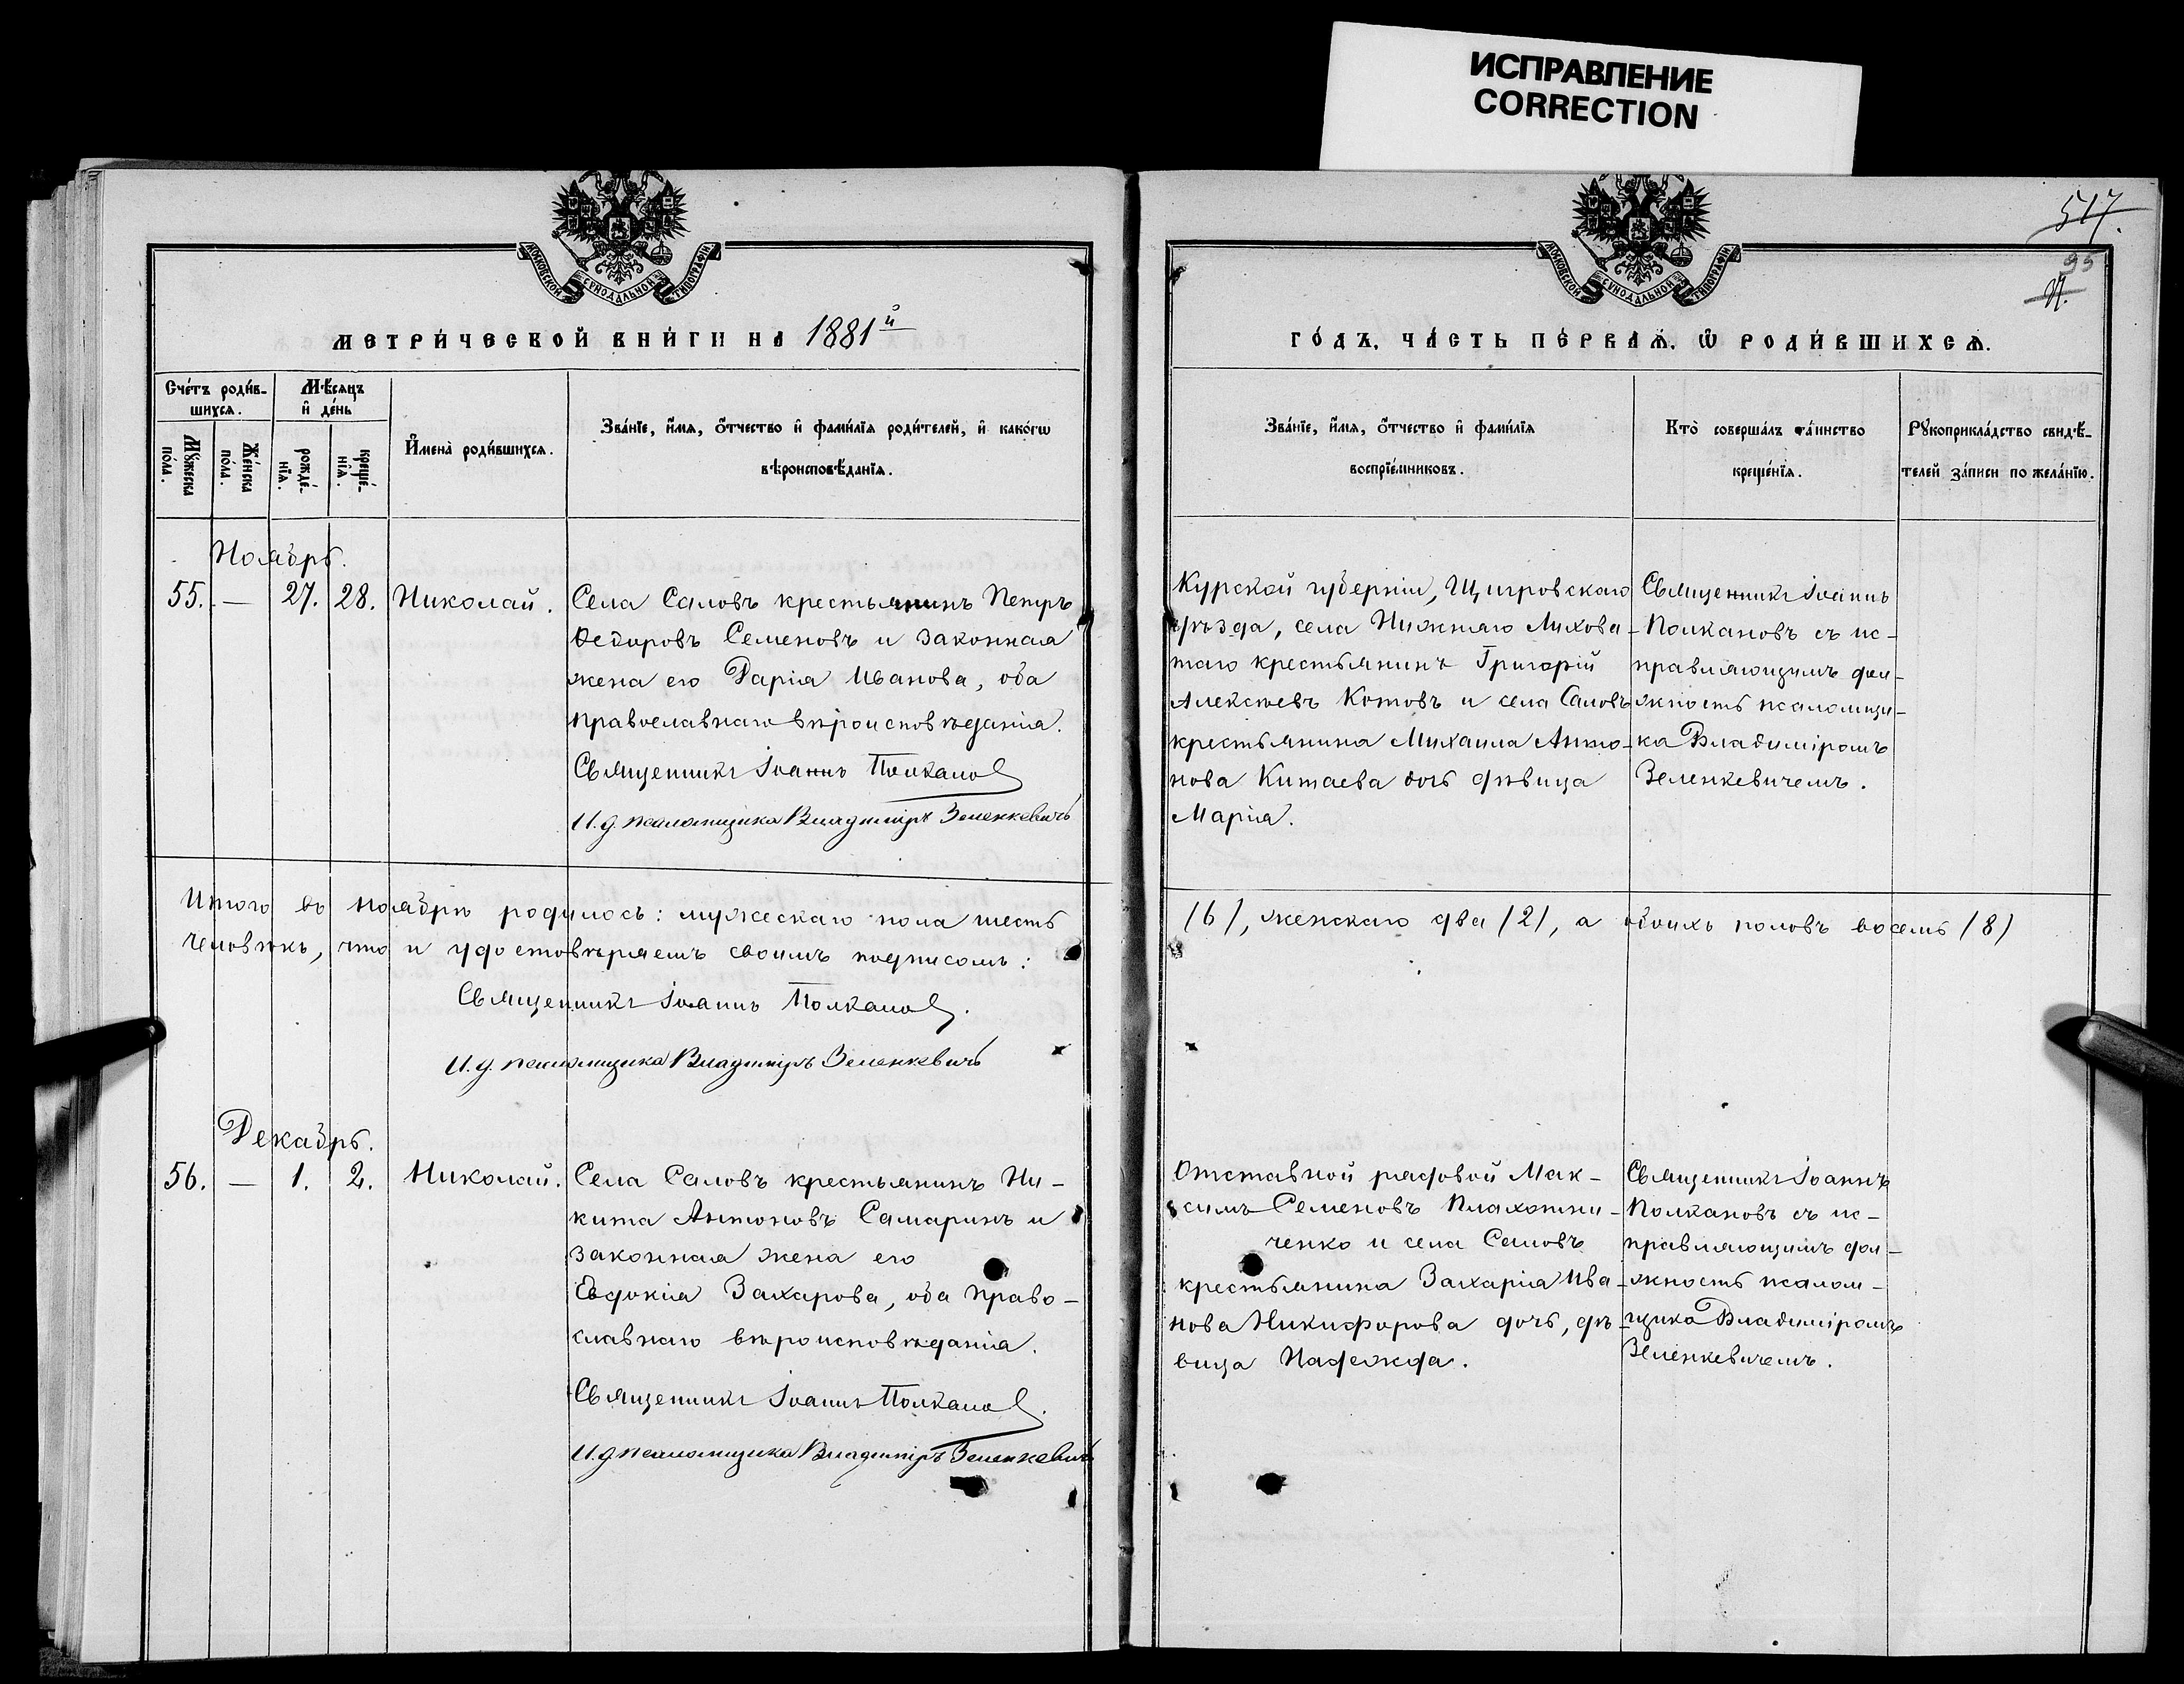 ИСПРАВЛЕНИЕ
CORRECTION
517.
95
МОСКОВСКОЙ СѴНОДАЛЬНОЙ ТИПОГРАФІИ
МОСКОВСКОЙ СѴНОДАЛЬНОЙ ТИПОГРАФІИ
МЕТРИ́ЧЕСКОЙ КНИ́ГИ НА 1881й
ГО́ДЪ, ЧА́СТЬ ПЕ́РВАѦ, Ѿ РОДИ́ВШИХСѦ.
Сче́тъ роди́в-
шихсѧ.
Мꙋ́жеска
по́ла.
Же́нска
по́ла.
Мѣ́сѧцъ
и҆ де́нь
рожде́-
нїѧ.
креще́-
нїѧ.
И҆мена̀ роди́вшихсѧ.
Зва́нїе, и҆́мѧ, ѻ҆́тчество и҆ фами́лїѧ роди́телей, и҆ како́гѡ
вѣроисповѣ́данїѧ.
Зва́нїе, и҆́мѧ, ѻ҆́тчество и҆ фами́лїѧ
воспрїе́мниковъ.
Кто̀ соверша́лъ та́инство
креще́нїѧ.
Рꙋкоприкла́дство свидѣ́-
телей за́писи по жела́нїю.
Ноябрь.
55. — 27. 28. Николай.
Села Саловъ крестьянинъ Петръ
Ѳедоровъ Семеновъ и законная
жена его Дарія Иванова, оба
православнаго вѣроисповѣданія.
Священникъ Іоаннъ Полкановъ
И. д. псаломщика Владиміръ Зеленкевичъ
Курской губерніи, Щигровскаго
уѣзда, села Нижняго Лихова-
таго крестьянинъ Григорій
Алексѣевъ Котовъ и села Саловъ
крестьянина Михаила Анто-
нова Китаева дочь дѣвица
Марія.
Священникъ Іоаннъ
Полкановъ съ ис-
правляющимъ дол-
жность псаломщи-
ка Владиміромъ
Зеленкевичемъ.
Итого въ ноябрѣ родилось: мужескаго пола шесть /6/, женскаго два /2/, а обоихъ половъ восемь /8/
человѣкъ, что и удостовѣряемъ своимъ подписомъ:
Священникъ Іоаннъ Полкановъ.
И. д. псаломщика Владиміръ Зеленкевичъ
Декабрь.
56. — 1. 2. Николай.
Села Саловъ крестьянинъ Ни-
кита Антоновъ Самаринъ и
законная жена его
Евдокія Захарова, оба право-
славнаго вѣроисповѣданія.
Священникъ Іоаннъ Полкановъ.
И. д. псаломщика Владиміръ Зеленкевичъ
Отставной рядовой Мак-
симъ Семеновъ Плахотни-
ченко и села Саловъ
крестьянина Захарія Ива-
нова Никифорова дочь, дѣ-
вица Надежда.
Священникъ Іоаннъ
Полкановъ съ ис-
правляющимъ дол-
жность псалом-
щика Владиміромъ
Зеленкевичемъ.